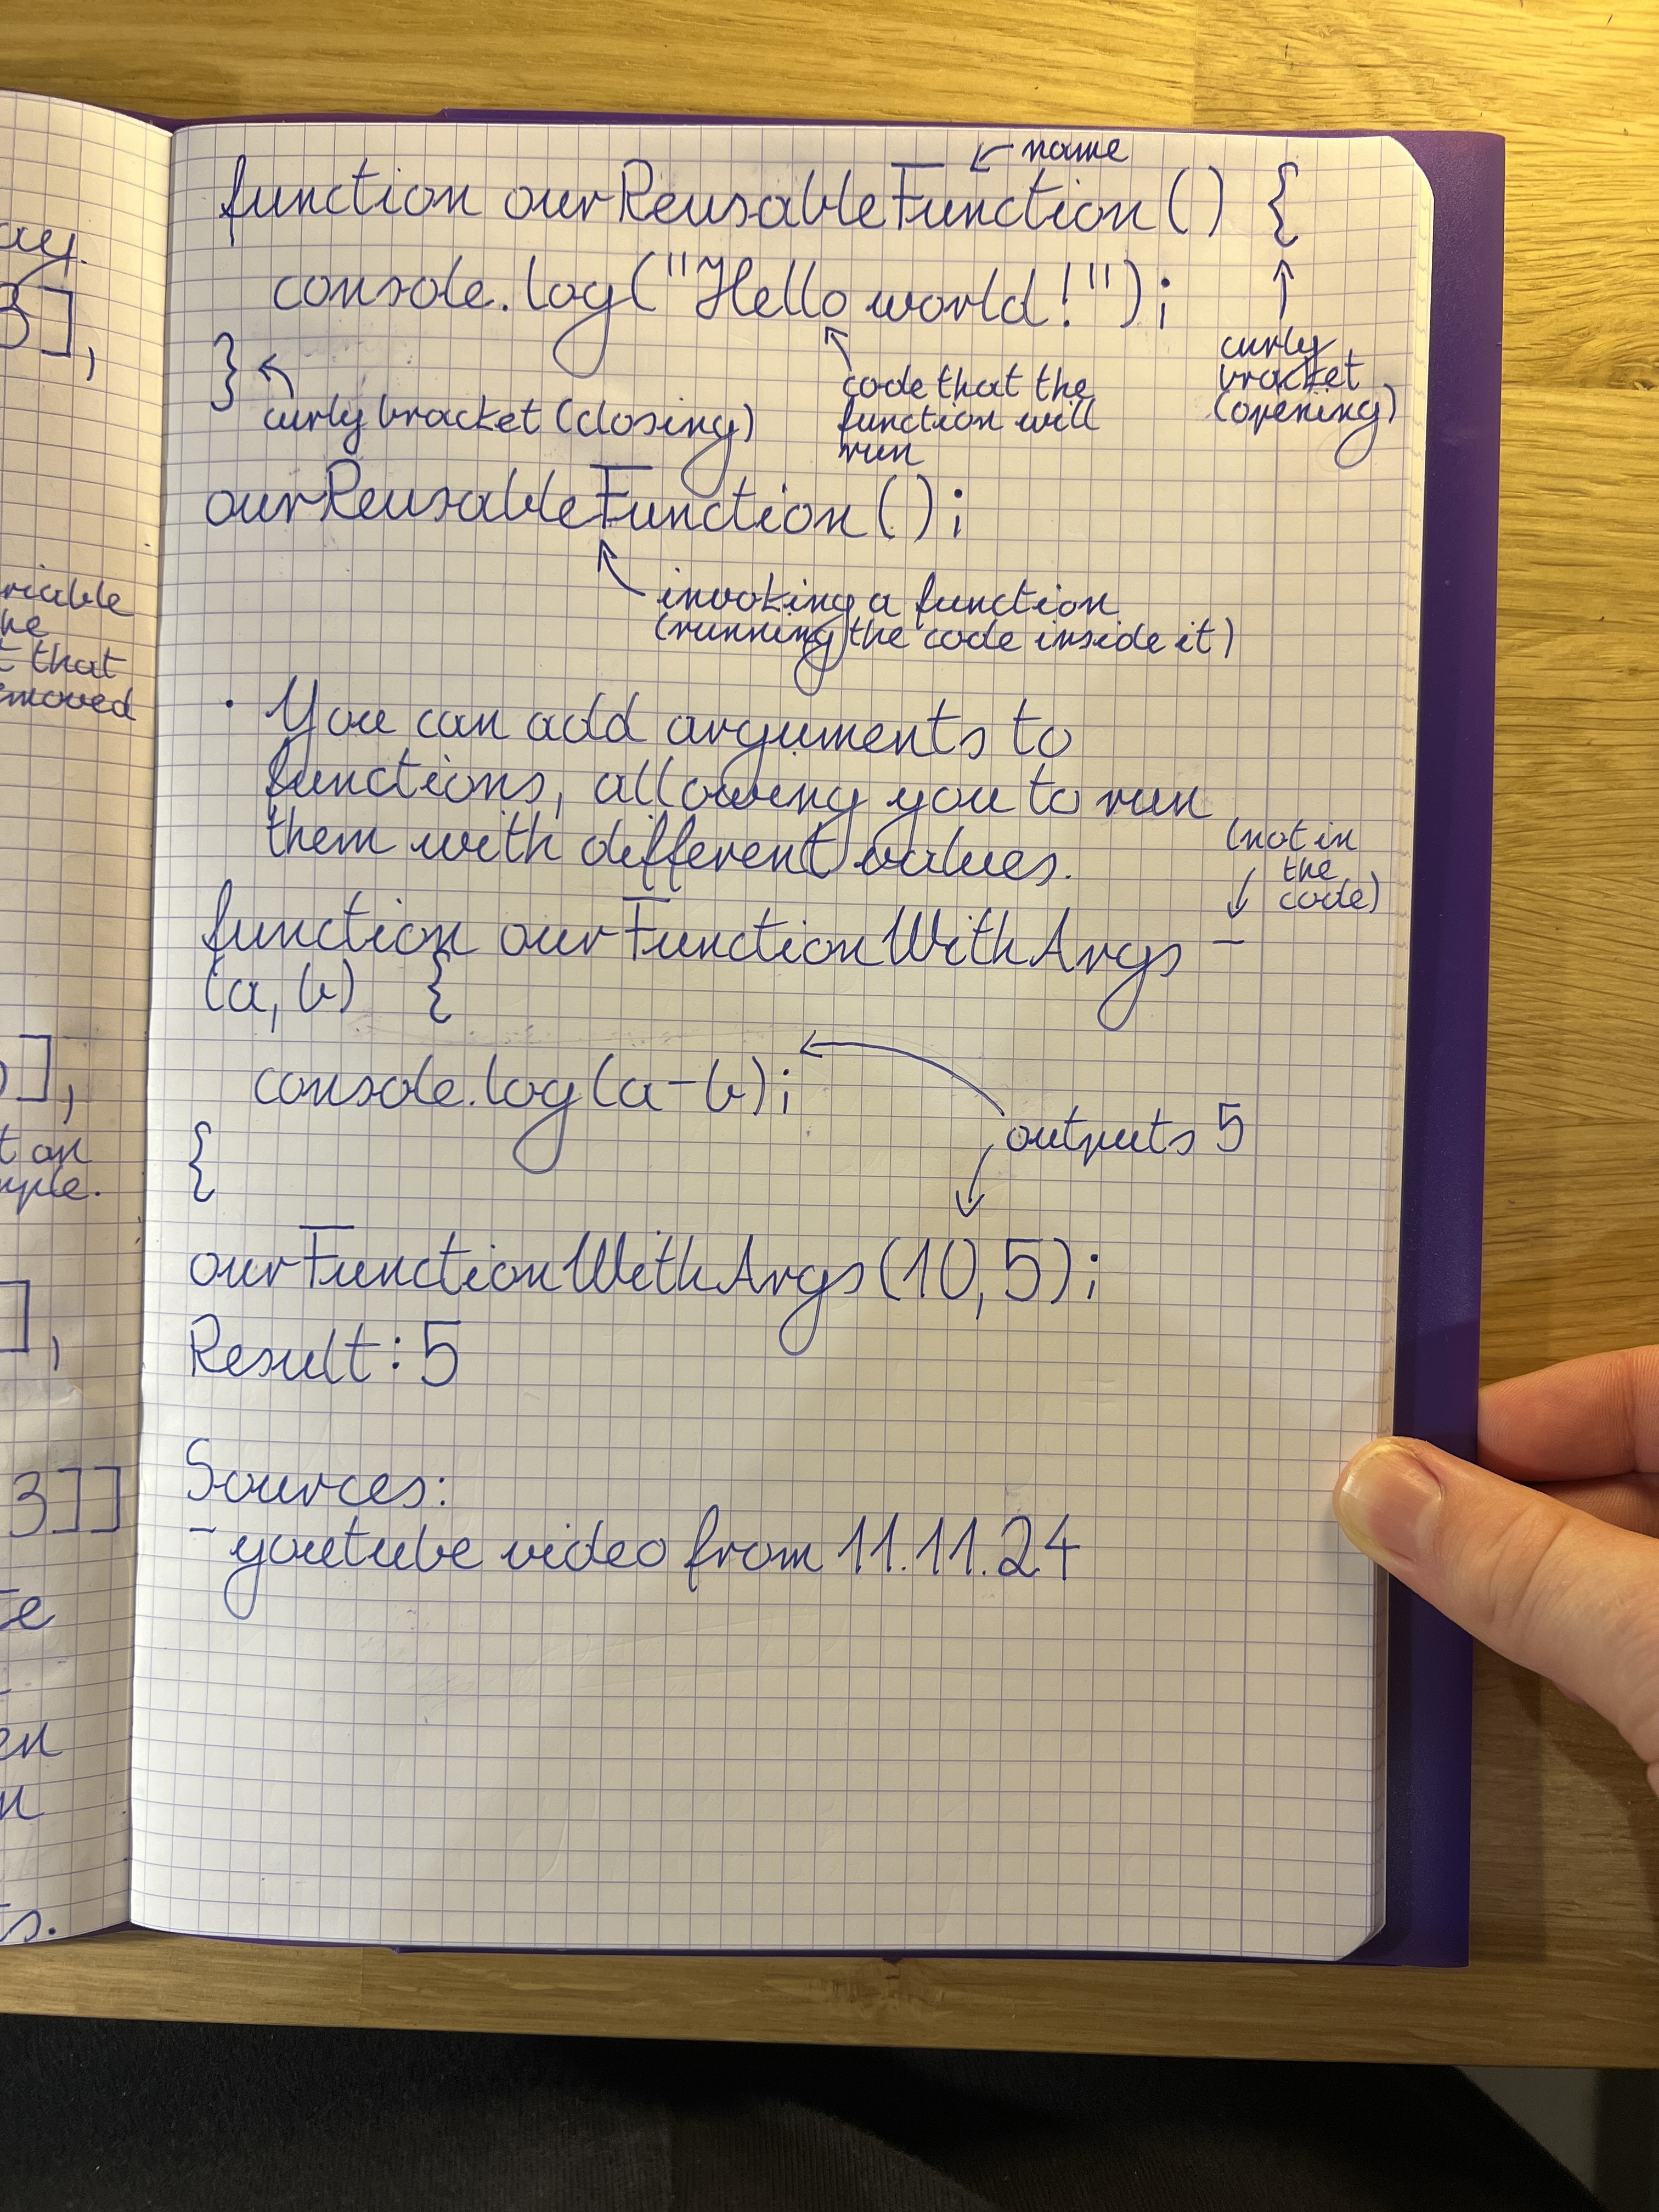 ay.
3],
riable
he
t that
emoved
],
t an
mple.
],
3]]
te
en
n
ts.
function ourReusableFunction() {
name
console.log("Hello world!");
}
curly bracket (closing)
code that the
function will
run
curly
bracket
(opening)
ourReusableFunction();
invoking a function
(running the code inside it)
· You can add arguments to
functions, allowing you to run
them with different values.
(not in
the
code)
function ourFunctionWithArgs -
(a, b) {
console.log(a-b);
{
outputs 5
ourFunctionWithArgs(10,5);
Result: 5
Sources:
- youtube video from 11.11.24